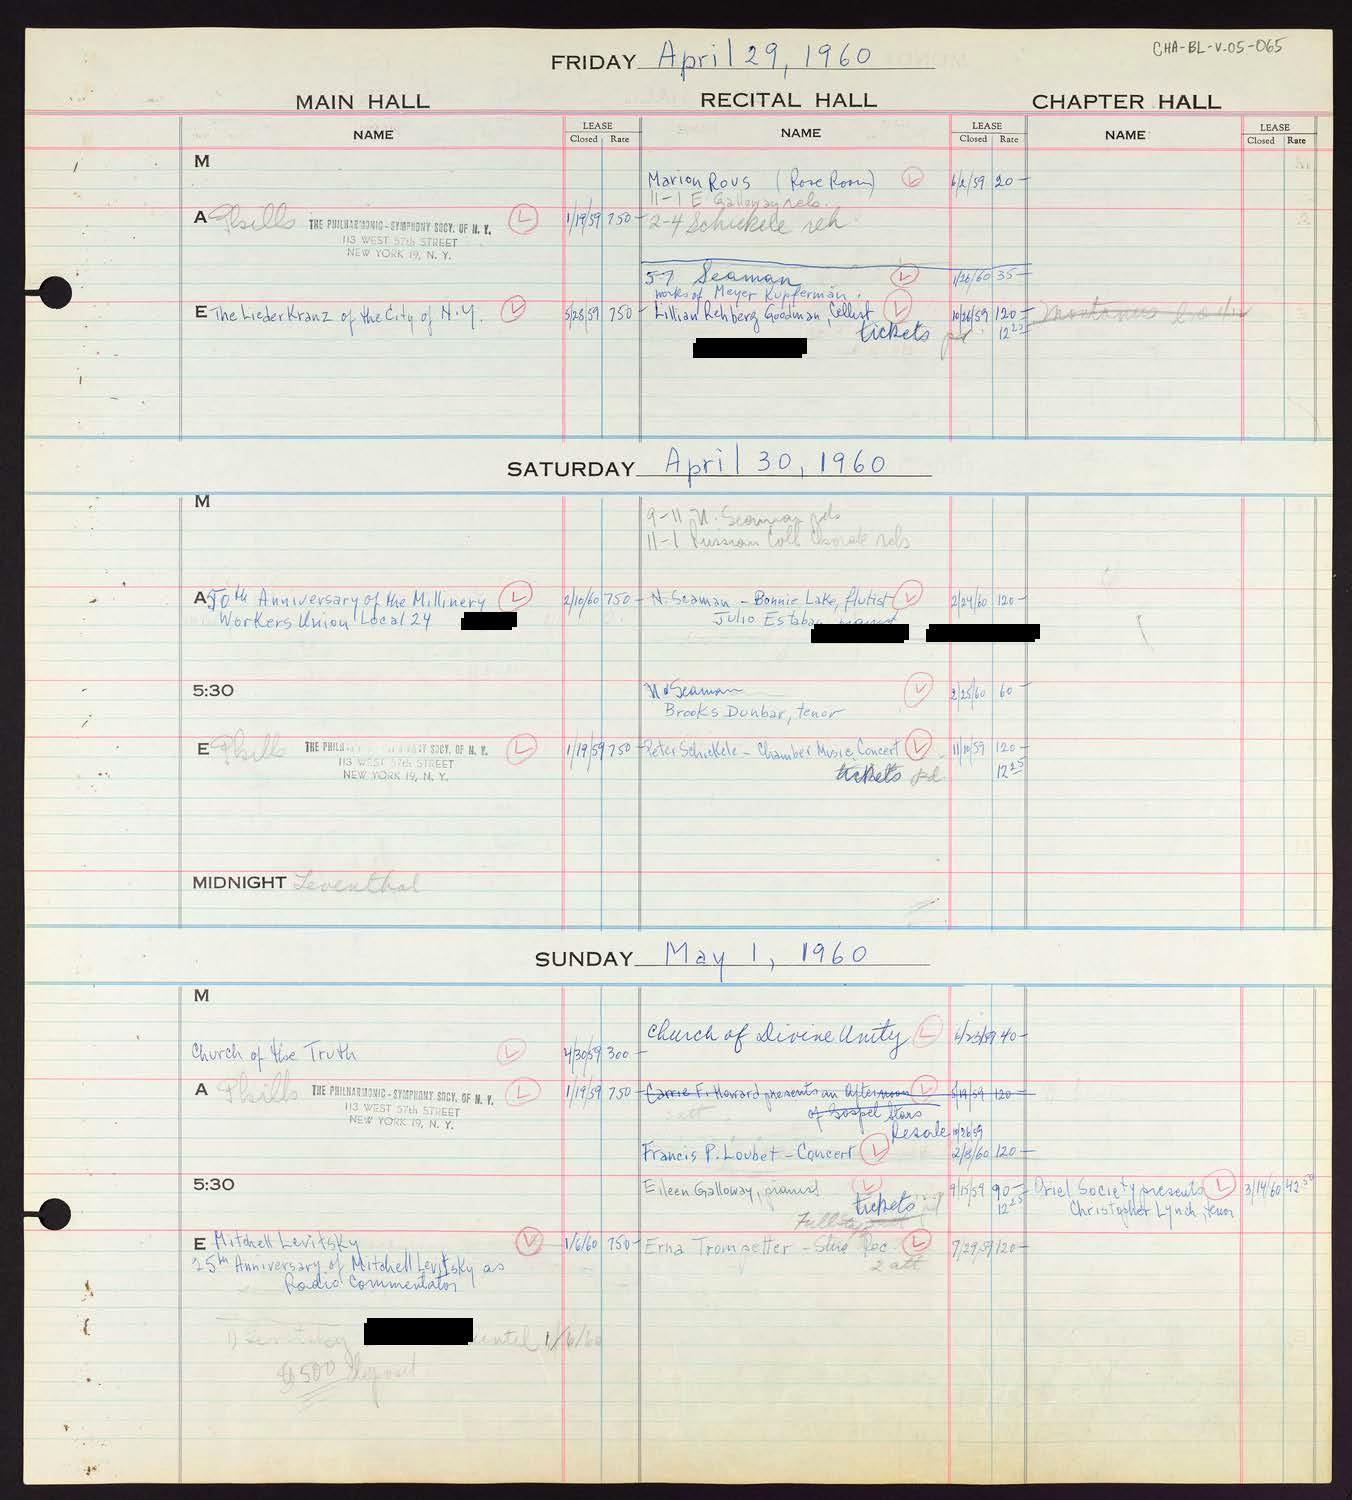 CHA-BL-V-05-065
FRIDAY April 29, 1960
MAIN HALL RECITAL HALL CHAPTER HALL
NAME LEASE Closed Rate NAME LEASE Closed Rate NAME LEASE Closed Rate
M
Marion Rous (Rose Room) L 6/2/59 20-
11-1 E Galloway rehs.
A Phills THE PHILHARMONIC-SYMPHONY SOCY. OF N. Y. L 1/19/59 750- 2-4 Schickele reh
113 WEST 57th STREET
NEW YORK 19, N. Y.
5-7 Seaman L 1/26/60 35-
works of Meyer Kupferman.
E The LiederKranz of the City of N.Y. L 5/28/59 750- Lillian Rehberg Goodman, Cellist L 10/26/59 120-
tickets pd 12 25
SATURDAY April 30, 1960
M
9-11 N. Seaman rehs
11-1 Russian Coll Chorale rehs
A 50th Anniversary of the Millinery L 2/10/60 750- N. Seaman - Bonnie Lake, flutist L 2/24/60 120-
Workers Union Local 24 Julio Estaban, pianist
5:30 N. Seaman L 2/25/60 60-
Brooks Dunbar, tenor
E Phills THE PHILHARMONIC-SYMPHONY SOCY. OF N. Y. L 1/19/59 750- Peter Schickele - Chamber Music Concert L 11/10/59 120-
113 WEST 57th STREET tickets pd 12 25
NEW YORK 19, N. Y.
MIDNIGHT Leventhal
SUNDAY May 1, 1960
M
Church of Divine Unity L 6/23/59 40-
Church of the Truth L 4/30/59 300-
A Phills THE PHILHARMONIC-SYMPHONY SOCY. OF N. Y. L 1/19/59 750- Carrie F. Howard presents an Afternoon L 120-
113 WEST 57th STREET of Gospel Stars
NEW YORK 19, N. Y. Resale 10/26/59
Francis P. Loubet - Concert L 2/8/60 120-
5:30 Eileen Galloway, pianist L 9/15/59 90- Oriel Society presents L 3/14/60 42.50
tickets pd 12 25 Christopher Lynch, tenor
E Mitchell Levitsky L 1/6/60 750- Erna Trompetter - Stud Rec. L 7/29/59 120-
25th Anniversary of Mitchell Levitsky as 2 att
Radio Commentator
until 1/6/60
$500 deposit